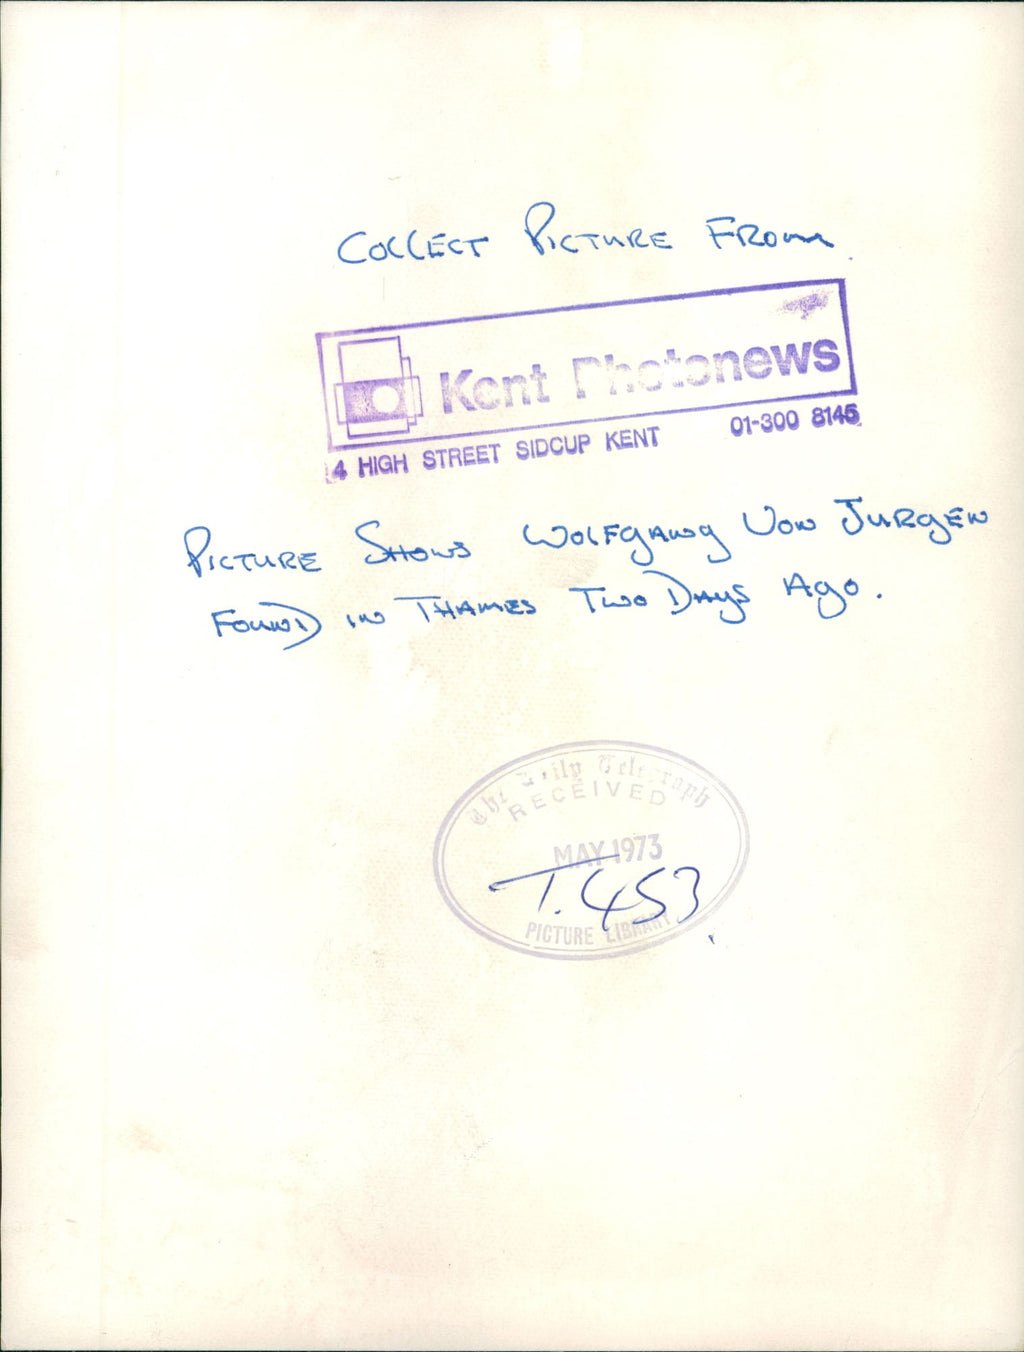 COLLECT PICTURE FROM
Kent Photonews
4 HIGH STREET SIDCUP KENT 01-300 8145
PICTURE SHOWS WOLFGANG VON JURGEN
FOUND IN THAMES TWO DAYS AGO.
The Daily Telegraph
RECEIVED
MAY 1973
T.453
PICTURE LIBRARY